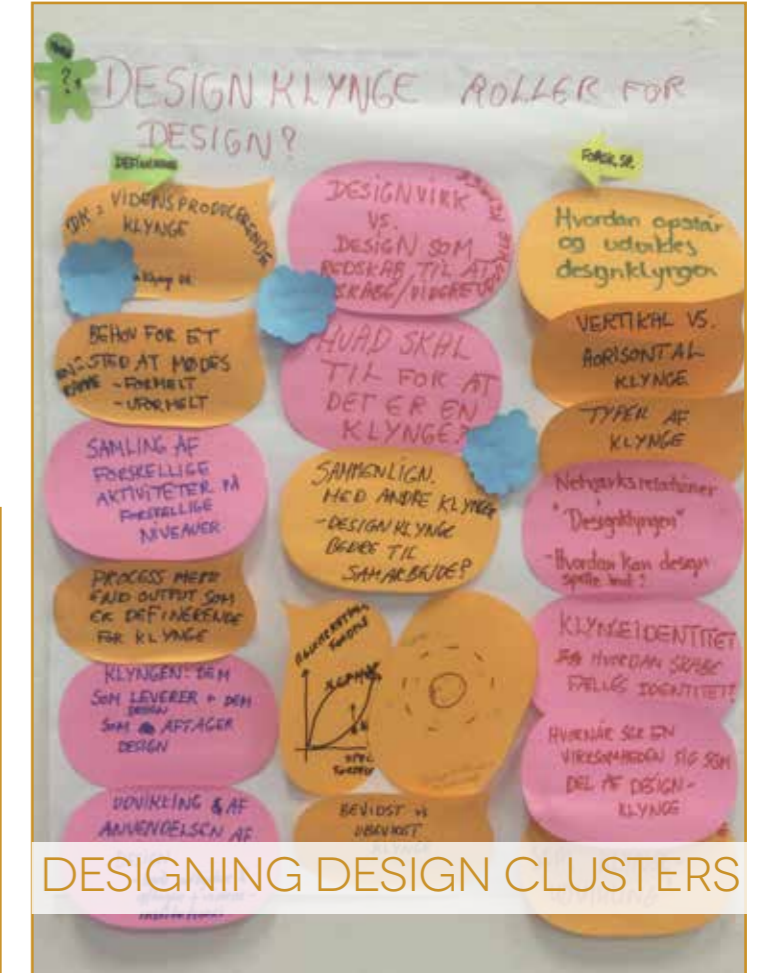 ?
DESIGN KLYNGE ROLLER FOR
DESIGN?
DEFINERING
DK = VIDENSPRODUCERENDE
KLYNGE
BEHOV FOR ET
STED AT MØDES
- FORMELT
- UFORMELT
SAMLING AF
FORSKELLIGE
AKTIVITETER PÅ
FORSKELLIGE
NIVEAUER
PROCESS MERE
END OUTPUT SOM
ER DEFINERENDE
FOR KLYNGE
KLYNGEN: DEM
SOM LEVERER + DEM
DESIGN
SOM AFTAGER
DESIGN
UDVIKLING & AF
ANVENDELSEN AF
DESIGNVIRK
VS.
DESIGN SOM
REDSKAB TIL AT
SKABE/VIDERE
HVAD SKAL
TIL FOR AT
DET ER EN
KLYNGE?
SAMMENLIGN.
MED ANDRE KLYNGER
- DESIGNKLYNGE
BEDRE TIL
SAMARBEJDE?
BEVIDST vs
UBEVIDST
KLYNGE
FORSK.SP.
Hvordan opstår
og udvikles
designklyngen
VERTIKAL VS.
HORISONTAL
KLYNGE
TYPER AF
KLYNGE
Netværksrelationer
"Designklyngen"
- Hvordan kan design
spille ind?
KLYNGEIDENTITET
HVORDAN SKABE
FÆLLES IDENTITET?
HVORNÅR SER EN
VIRKSOMHEDEN SIG SOM
DEL AF DESIGN-
KLYNGE
DESIGNING DESIGN CLUSTERS